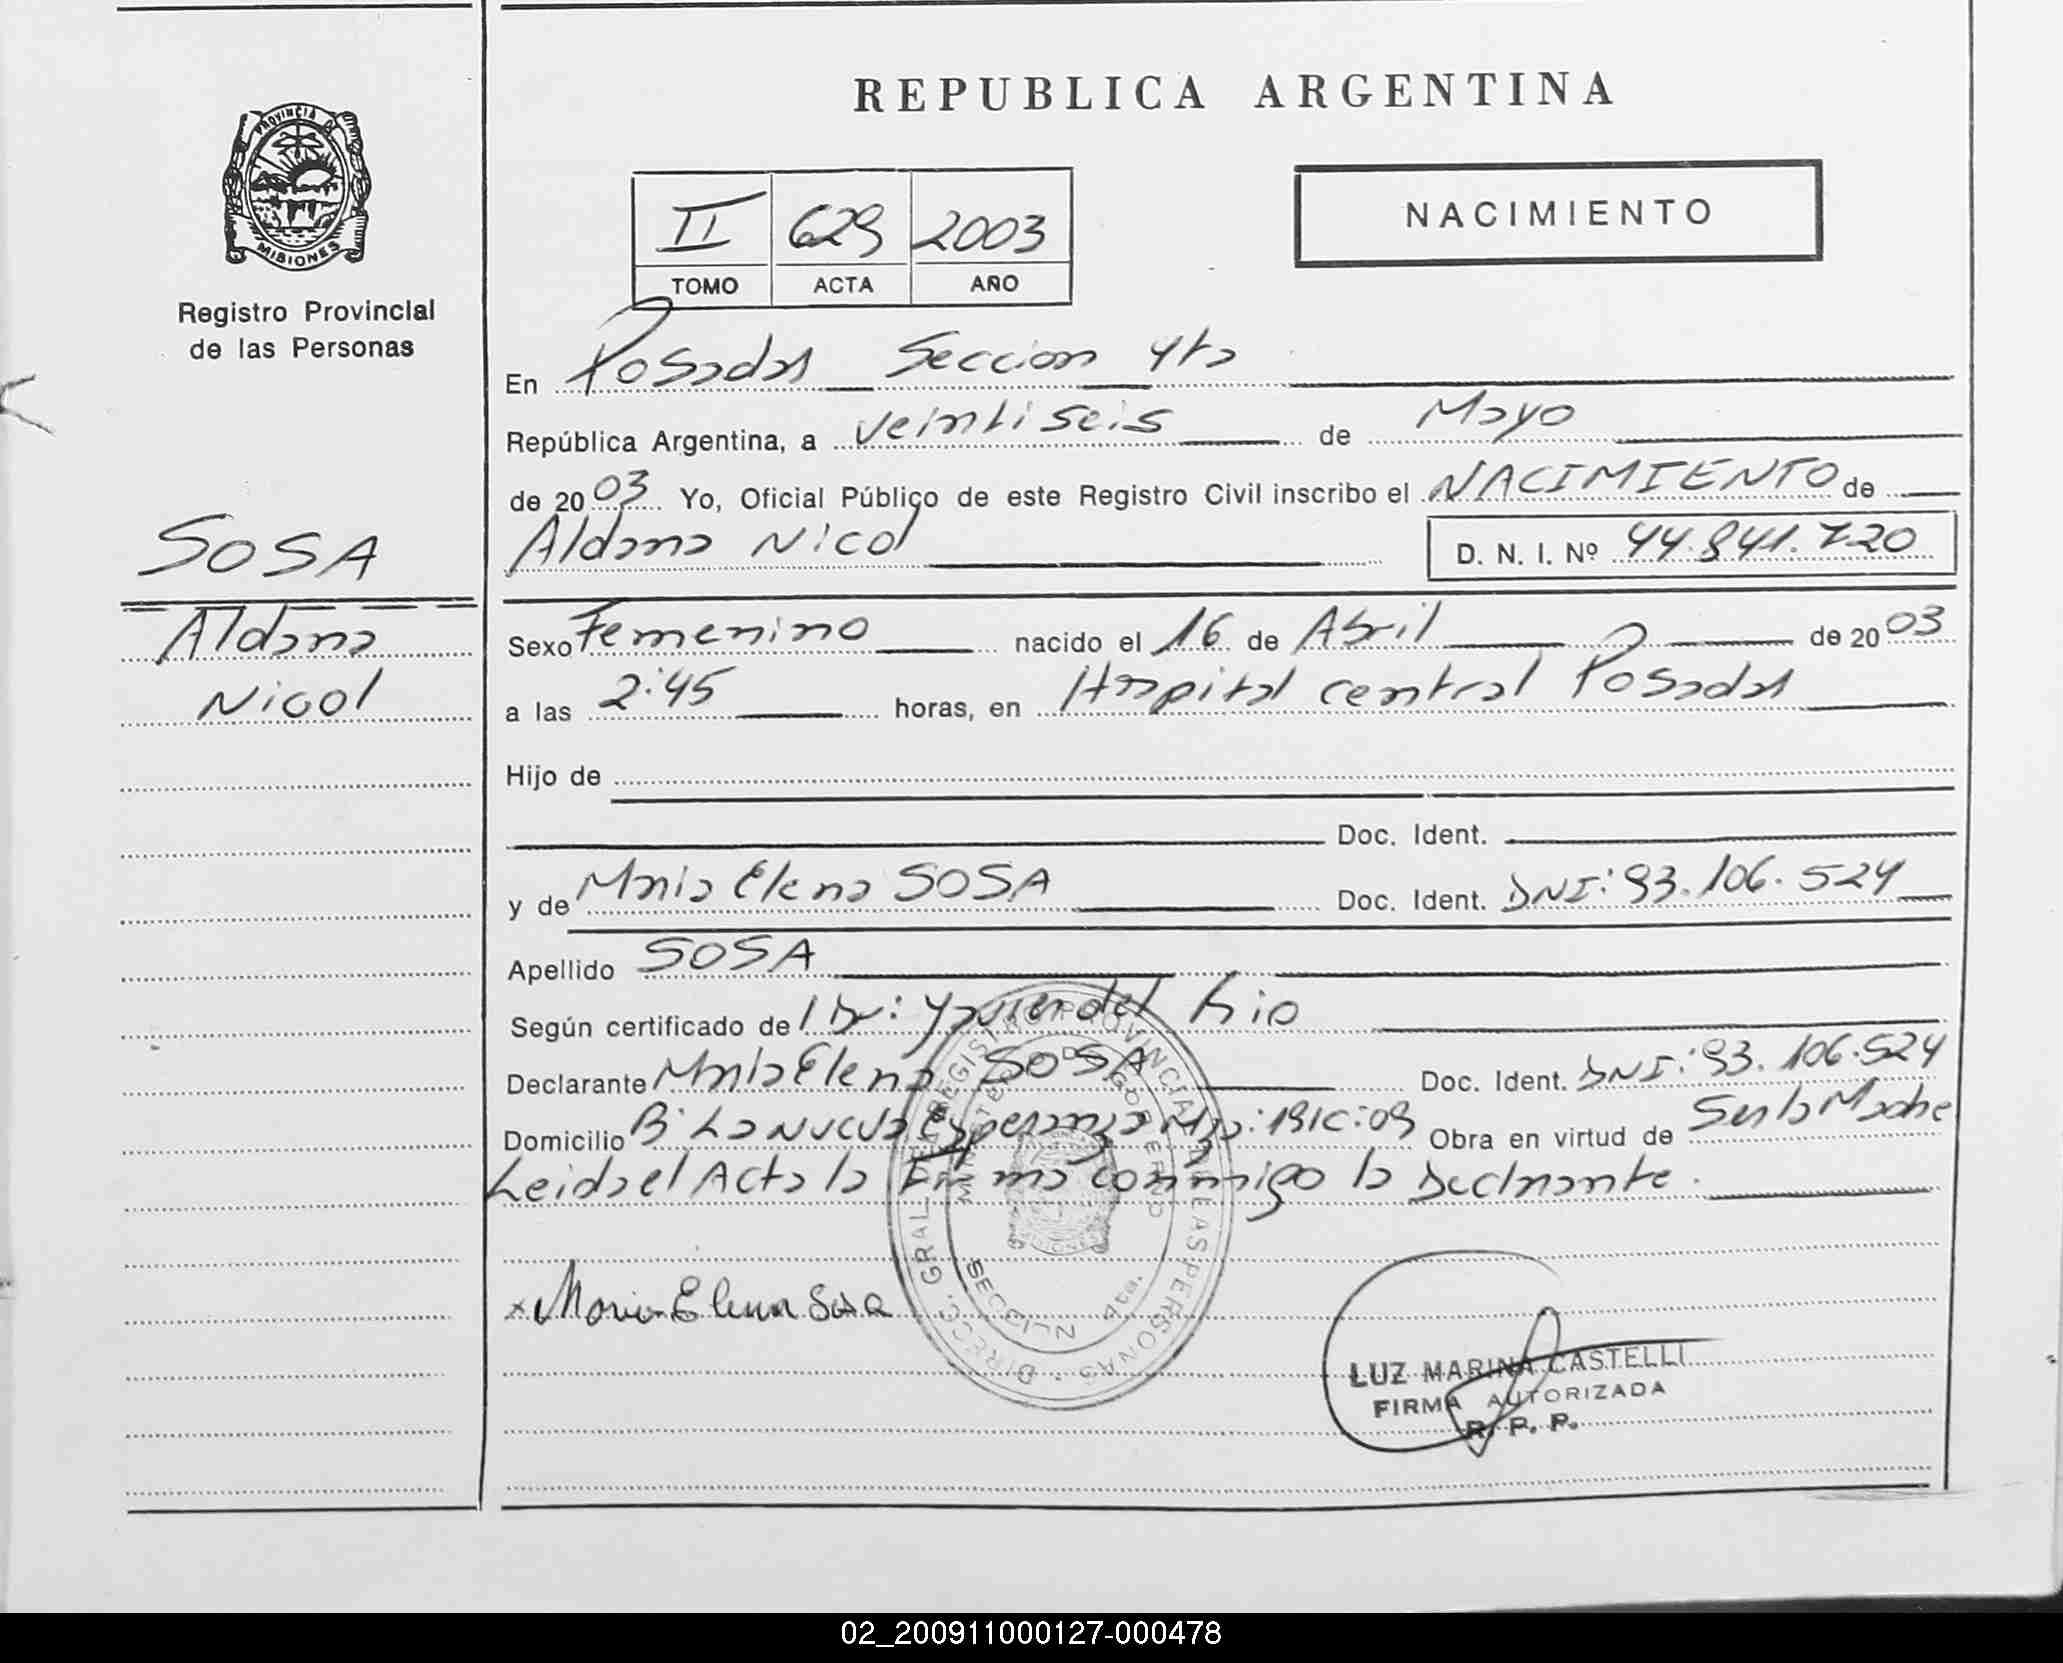 PROVINCIA DE
MISIONES
Registro Provincial
de las Personas
SOSA
Aldana
Nicol
REPUBLICA ARGENTINA
II 629 2003
TOMO ACTA AÑO
NACIMIENTO
En Posadas Seccion 4ta
República Argentina, a veintiseis de Mayo
de 2003 Yo, Oficial Público de este Registro Civil inscribo el NACIMIENTO de
Aldana Nicol D. N. I. Nº 44.841.720
Sexo Femenino nacido el 16 de Abril de 2003
a las 2:45 horas, en Hospital central Posadas
Hijo de
Doc. Ident.
y de Maria Elena SOSA Doc. Ident. DNI: 93.106.524
Apellido SOSA
Según certificado de Dr: Yavier del Rio
Declarante Maria Elena SOSA Doc. Ident. DNI: 93.106.524
Domicilio B° La Nueva Esperanza Mz: 191C:09 Obra en virtud de Ser la Madre
Leida el Acta la Firma conmigo la Declarante.
x Maria Elena Sosa
DIRECC. GRAL. DEL REGISTRO PROVINCIAL DE LAS PERSONAS
MINISTERIO DE GOBIERNO
SECCION 4ta.
LUZ MARINA CASTELLI
FIRMA AUTORIZADA
R. P. P.
02_200911000127-000478